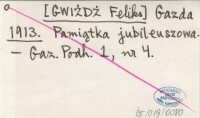 [GWIŻDŻ Feliks] Gazda
1913. Pamiątka jubileuszowa.
– Gaz. Podh. 1, nr 4.